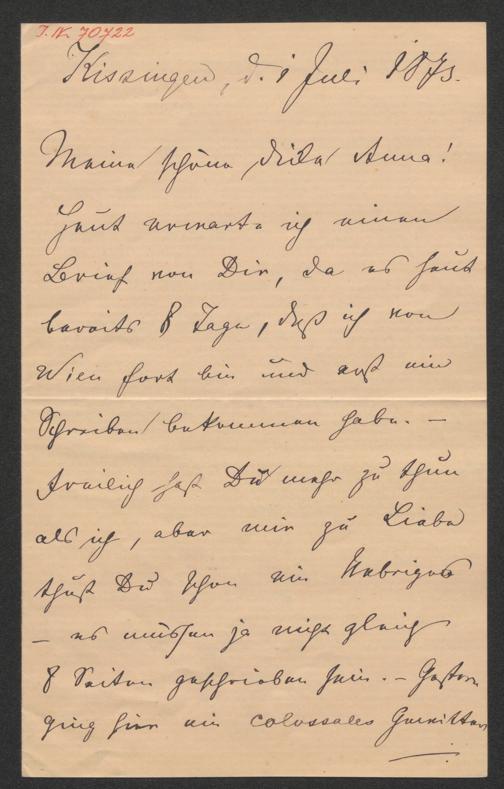 I.N. 70722
Kissingen, d. 1 Juli 1873.
Meine schöne, Anna!
Heut erwarte ich einen
Brief von Dir, da es heut
bereits 8 Tage, daß ich von
Wien fort bin und erst ein
Schreiben bekommen habe. –
Freilich hast Du mehr zu thun
als ich, aber mir zu Liebe
thust Du schon ein Uebriges
– es müssen ja nicht gleich
8 Seiten geschrieben sein. – Gestern
ging hier ein colossales Gewitter